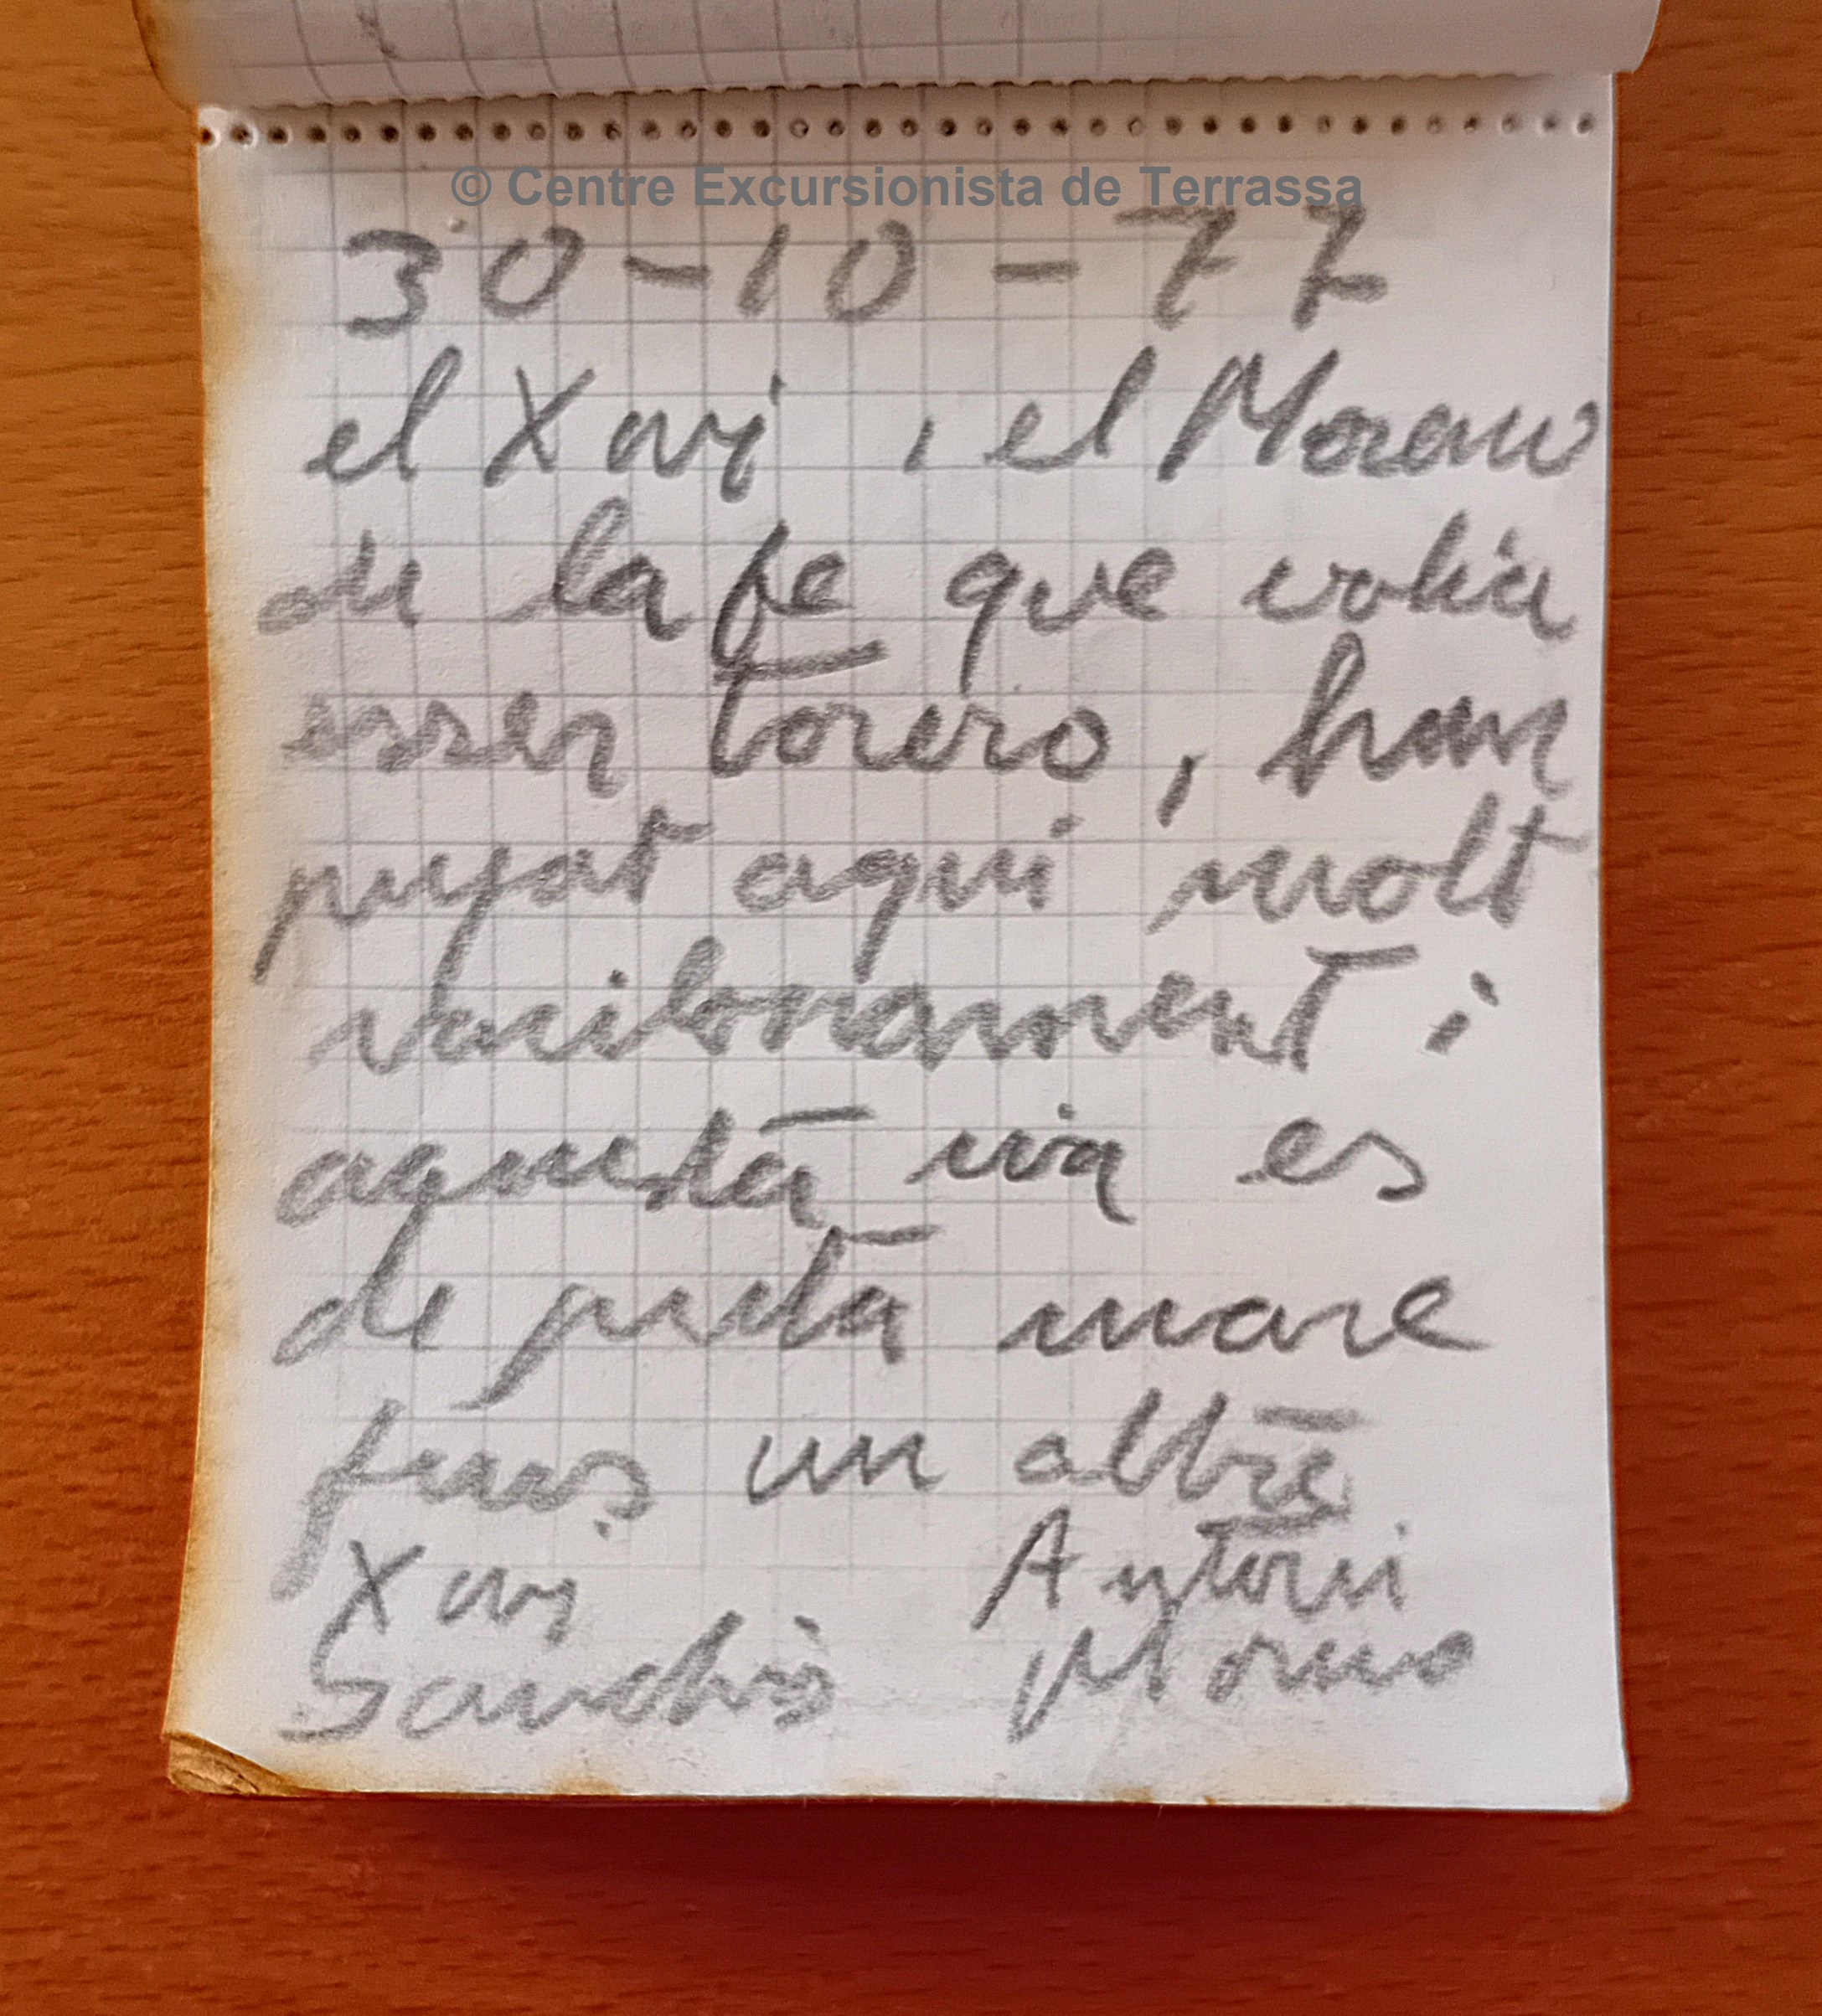 © Centre Excursionista de Terrassa
30-10-77
el Xavi, el Moreno
de la fe que volia
esser torero, han
pujat aqui molt
vacilonament i
aquesta via es
de puta mare
fins un altre
Xavi Antoni
Sanchis Moreno